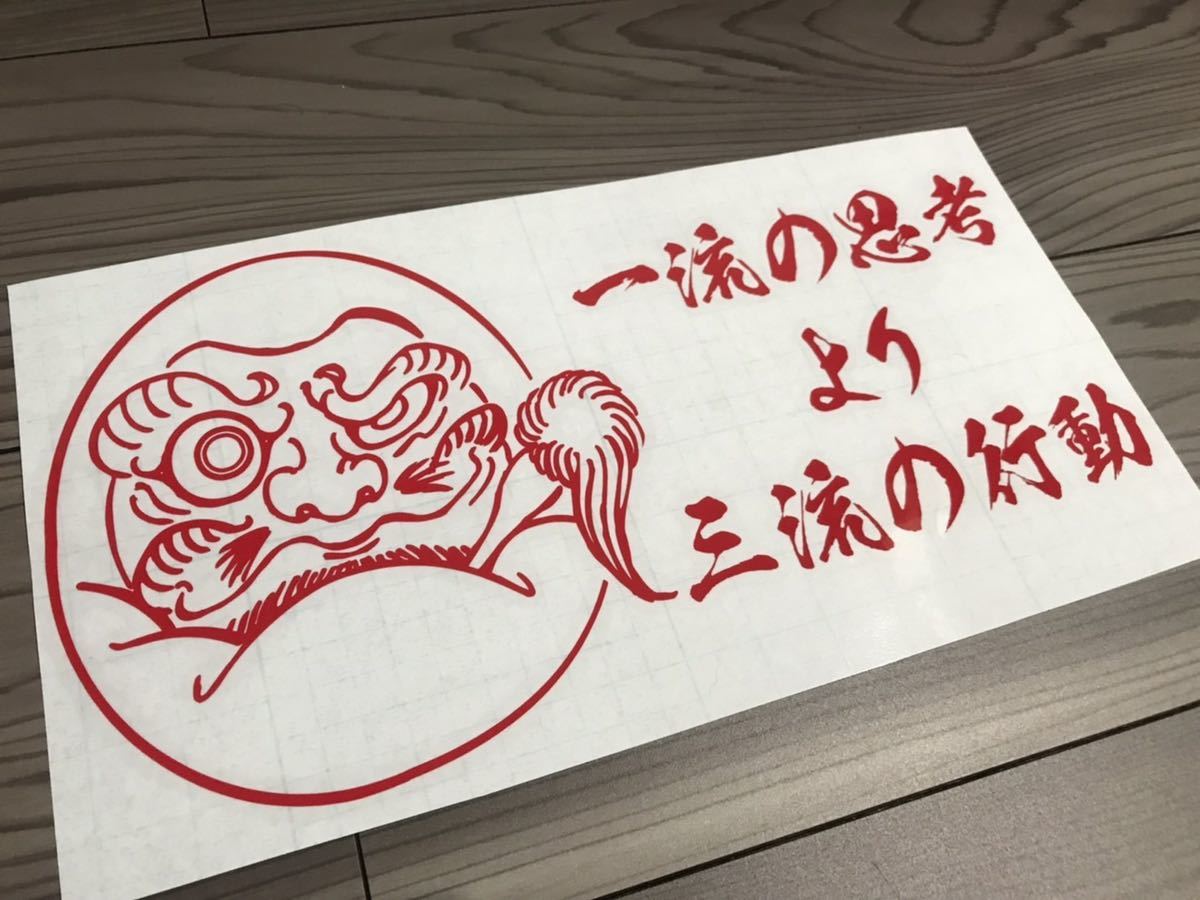 一流の思考
より
三流の行動